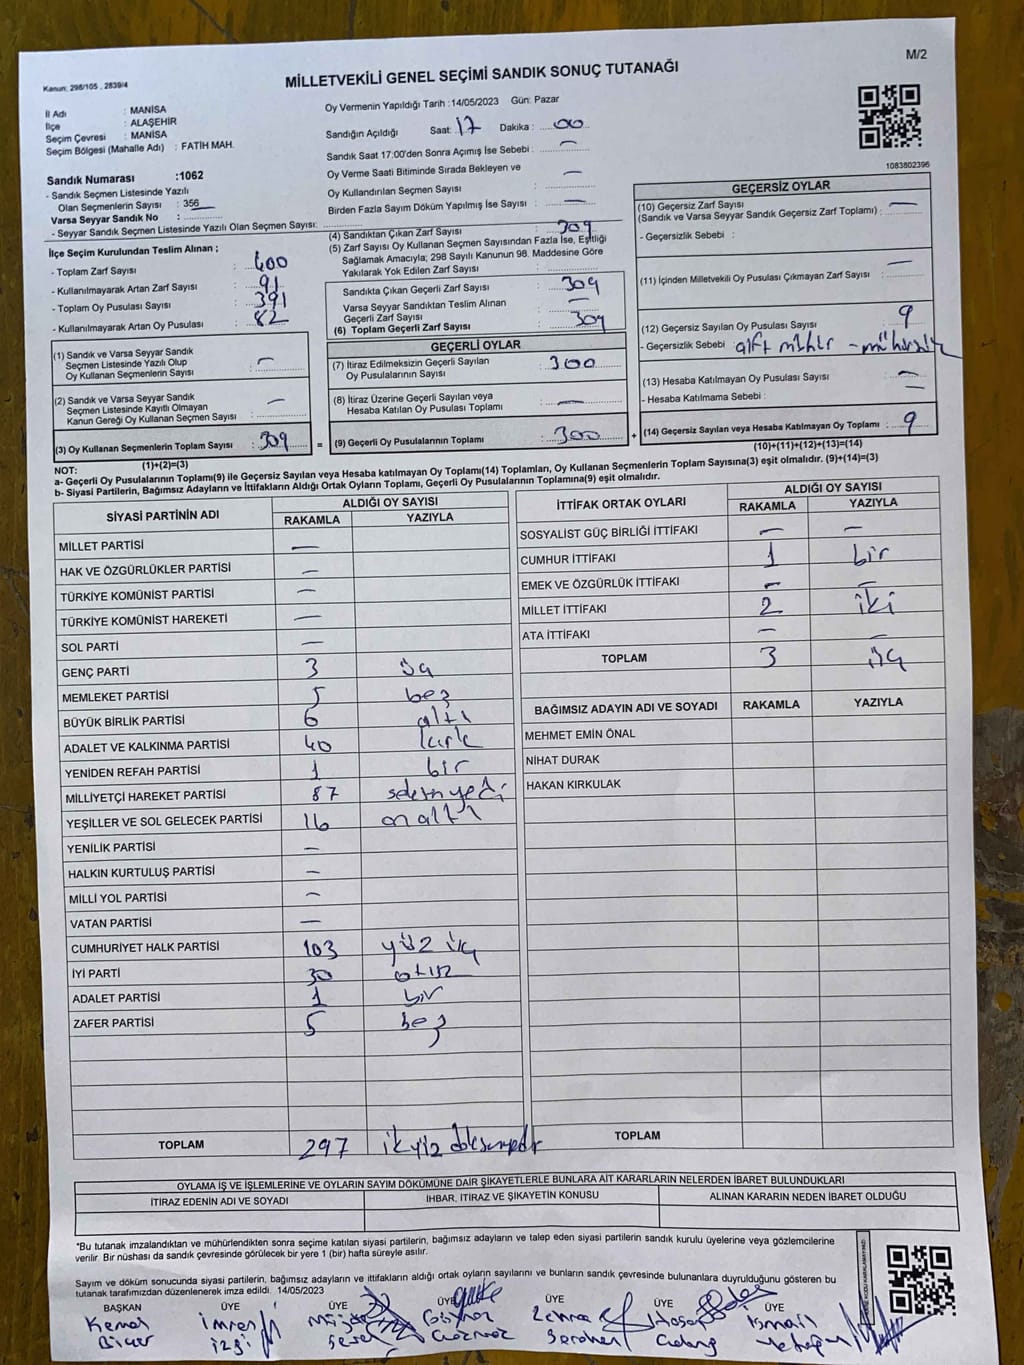 M/2
Kanun: 298/105 , 2839/4
MİLLETVEKİLİ GENEL SEÇİMİ SANDIK SONUÇ TUTANAĞI
İl Adı : MANİSA
İlçe : ALAŞEHİR
Seçim Çevresi : MANİSA
Seçim Bölgesi (Mahalle Adı) : FATİH MAH.
Sandık Numarası :1062
- Sandık Seçmen Listesinde Yazılı
Olan Seçmenlerin Sayısı : 356
Varsa Seyyar Sandık No :
- Seyyar Sandık Seçmen Listesinde Yazılı Olan Seçmen Sayısı:
Oy Vermenin Yapıldığı Tarih :14/05/2023 Gün: Pazar
Sandığın Açıldığı Saat: 17 Dakika : 00
Sandık Saat 17:00'den Sonra Açımış İse Sebebi : —
Oy Verme Saati Bitiminde Sırada Bekleyen ve
Oy Kullandırılan Seçmen Sayısı : —
Birden Fazla Sayım Döküm Yapılmış İse Sayısı : —
1083802396
İlçe Seçim Kurulundan Teslim Alınan ;
- Toplam Zarf Sayısı : 400
- Kullanılmayarak Artan Zarf Sayısı : 91
- Toplam Oy Pusulası Sayısı : 391
- Kullanılmayarak Artan Oy Pusulası : 82
(1) Sandık ve Varsa Seyyar Sandık
Seçmen Listesinde Yazılı Olup
Oy Kullanan Seçmenlerin Sayısı : —
(2) Sandık ve Varsa Seyyar Sandık
Seçmen Listesinde Kayıtlı Olmayan
Kanun Gereği Oy Kullanan Seçmen Sayısı : —
(3) Oy Kullanan Seçmenlerin Toplam Sayısı : 309
(1)+(2)=(3)
(4) Sandıktan Çıkan Zarf Sayısı : 309
(5) Zarf Sayısı Oy Kullanan Seçmen Sayısından Fazla İse, Eşitliği
Sağlamak Amacıyla; 298 Sayılı Kanunun 98. Maddesine Göre
Yakılarak Yok Edilen Zarf Sayısı :
Sandıkta Çıkan Geçerli Zarf Sayısı : 309
Varsa Seyyar Sandıktan Teslim Alınan
Geçerli Zarf Sayısı : —
(6) Toplam Geçerli Zarf Sayısı : 309
GEÇERLİ OYLAR
(7) İtiraz Edilmeksizin Geçerli Sayılan
Oy Pusulalarının Sayısı : 300
(8) İtiraz Üzerine Geçerli Sayılan veya
Hesaba Katılan Oy Pusulası Toplamı : —
= (9) Geçerli Oy Pusulalarının Toplamı : 300 +
GEÇERSİZ OYLAR
(10) Geçersiz Zarf Sayısı
(Sandık ve Varsa Seyyar Sandık Geçersiz Zarf Toplamı) : —
- Geçersizlik Sebebi :
(11) İçinden Milletvekili Oy Pusulası Çıkmayan Zarf Sayısı : —
(12) Geçersiz Sayılan Oy Pusulası Sayısı : 9
- Geçersizlik Sebebi : çift mühür - mühürsüz
(13) Hesaba Katılmayan Oy Pusulası Sayısı : —
- Hesaba Katılmama Sebebi : —
(14) Geçersiz Sayılan veya Hesaba Katılmayan Oy Toplamı : 9
(10)+(11)+(12)+(13)=(14)
NOT:
a- Geçerli Oy Pusulalarının Toplamı(9) ile Geçersiz Sayılan veya Hesaba Katılmayan Oy Toplamı(14) Toplamları, Oy Kullanan Seçmenlerin Toplam Sayısına(3) eşit olmalıdır. (9)+(14)=(3)
b- Siyasi Partilerin, Bağımsız Adayların ve İttifakların Aldığı Ortak Oyların Toplamı, Geçerli Oy Pusulalarının Toplamına(9) eşit olmalıdır.
SİYASİ PARTİNİN ADI ALDIĞI OY SAYISI
RAKAMLA YAZIYLA
MİLLET PARTİSİ —
HAK VE ÖZGÜRLÜKLER PARTİSİ —
TÜRKİYE KOMÜNİST PARTİSİ —
TÜRKİYE KOMÜNİST HAREKETİ —
SOL PARTİ —
GENÇ PARTİ 3 üç
MEMLEKET PARTİSİ 5 beş
BÜYÜK BİRLİK PARTİSİ 6 altı
ADALET VE KALKINMA PARTİSİ 40 kırk
YENİDEN REFAH PARTİSİ 1 bir
MİLLİYETÇİ HAREKET PARTİSİ 87 seksenyedi
YEŞİLLER VE SOL GELECEK PARTİSİ 16 onaltı
YENİLİK PARTİSİ —
HALKIN KURTULUŞ PARTİSİ —
MİLLİ YOL PARTİSİ —
VATAN PARTİSİ —
CUMHURİYET HALK PARTİSİ 103 yüz üç
İYİ PARTİ 30 otuz
ADALET PARTİSİ 1 bir
ZAFER PARTİSİ 5 beş
TOPLAM 297 ikiyüz doksanyedi
İTTİFAK ORTAK OYLARI ALDIĞI OY SAYISI
RAKAMLA YAZIYLA
SOSYALİST GÜÇ BİRLİĞİ İTTİFAKI — —
CUMHUR İTTİFAKI 1 bir
EMEK VE ÖZGÜRLÜK İTTİFAKI — —
MİLLET İTTİFAKI 2 iki
ATA İTTİFAKI — —
TOPLAM 3 üç
BAĞIMSIZ ADAYIN ADI VE SOYADI RAKAMLA YAZIYLA
MEHMET EMİN ÖNAL
NİHAT DURAK
HAKAN KIRKULAK
TOPLAM
OYLAMA İŞ VE İŞLEMLERİNE VE OYLARIN SAYIM DÖKÜMÜNE DAİR ŞİKAYETLERLE BUNLARA AİT KARARLARIN NELERDEN İBARET BULUNDUKLARI
İTİRAZ EDENİN ADI VE SOYADI İHBAR, İTİRAZ VE ŞİKAYETİN KONUSU ALINAN KARARIN NEDEN İBARET OLDUĞU
*Bu tutanak imzalandıktan ve mühürlendikten sonra seçime katılan siyasi partilerin, bağımsız adayların ve talep eden siyasi partilerin sandık kurulu üyelerine veya gözlemcilerine
verilir. Bir nüshası da sandık çevresinde görülecek bir yere 1 (bir) hafta süreyle asılır.
Sayım ve döküm sonucunda siyasi partilerin, bağımsız adayların ve ittifakların aldığı ortak oyların sayılarını ve bunların sandık çevresinde bulunanlara duyrulduğunu gösteren bu
tutanak tarafımızdan düzenlenerek imza edildi. 14/05/2023
BAŞKAN ÜYE ÜYE ÜYE ÜYE ÜYE ÜYE
Kemal İmren Zehra Hasan İsmail
İzgi